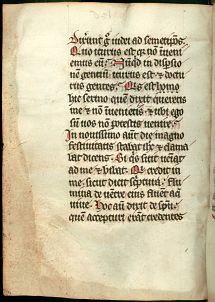 Dixerunt g iudei ad semetipos
Quo iturus est qr non inveni
emus eum Nuqd in dispsio
nem gentium iturus est & doctu
rus gentes Quis est hic
sermo quem dixit queretis
me & non invenietis & ubi ego
sum vos non potestis venire
In novissimo aut die magno
festivitatis stabat ihc & clama
bat dicens Si quis sitit veniat
ad me & bibat Qui credit in
me sicut dicit scriptura flu
mina de ventre eius fluent aque
vive Hoc aut dixit de spu
quem accepturi erant credentes